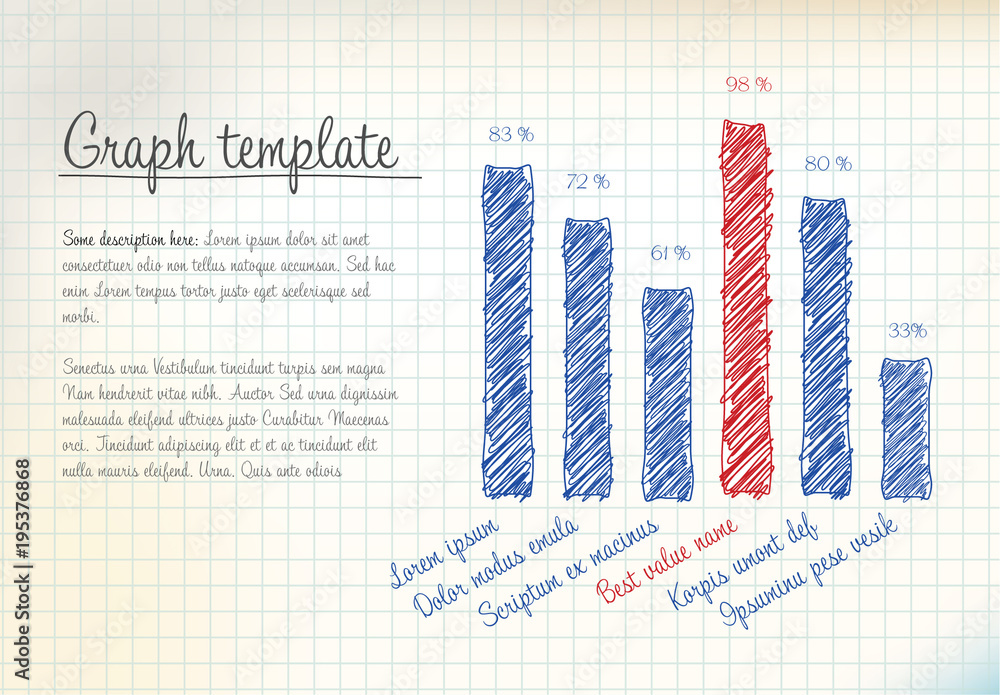 Graph template
Some description here: Lorem ipsum dolor sit amet
consectetuer odio non tellus natoque accumsan. Sed hac
enim Lorem tempus tortor justo eget scelerisque sed
morbi.
Senectus urna Vestibulum tincidunt turpis sem magna
Nam hendrerit vitae nibh. Auctor Sed urna dignissim
malesuada eleifend ultrices justo Curabitur Maecenas
orci. Tincidunt adipiscing elit et et ac tincidunt elit
nulla mauris eleifend. Urna. Quis ante odiois
83 %
72 %
61 %
98 %
80 %
33%
Lorem ipsum
Dolor modus emula
Scriptum ex macinus
Best value name
Korpis umont def
Ipsuminu pese vesik
Adobe Stock | #195376868